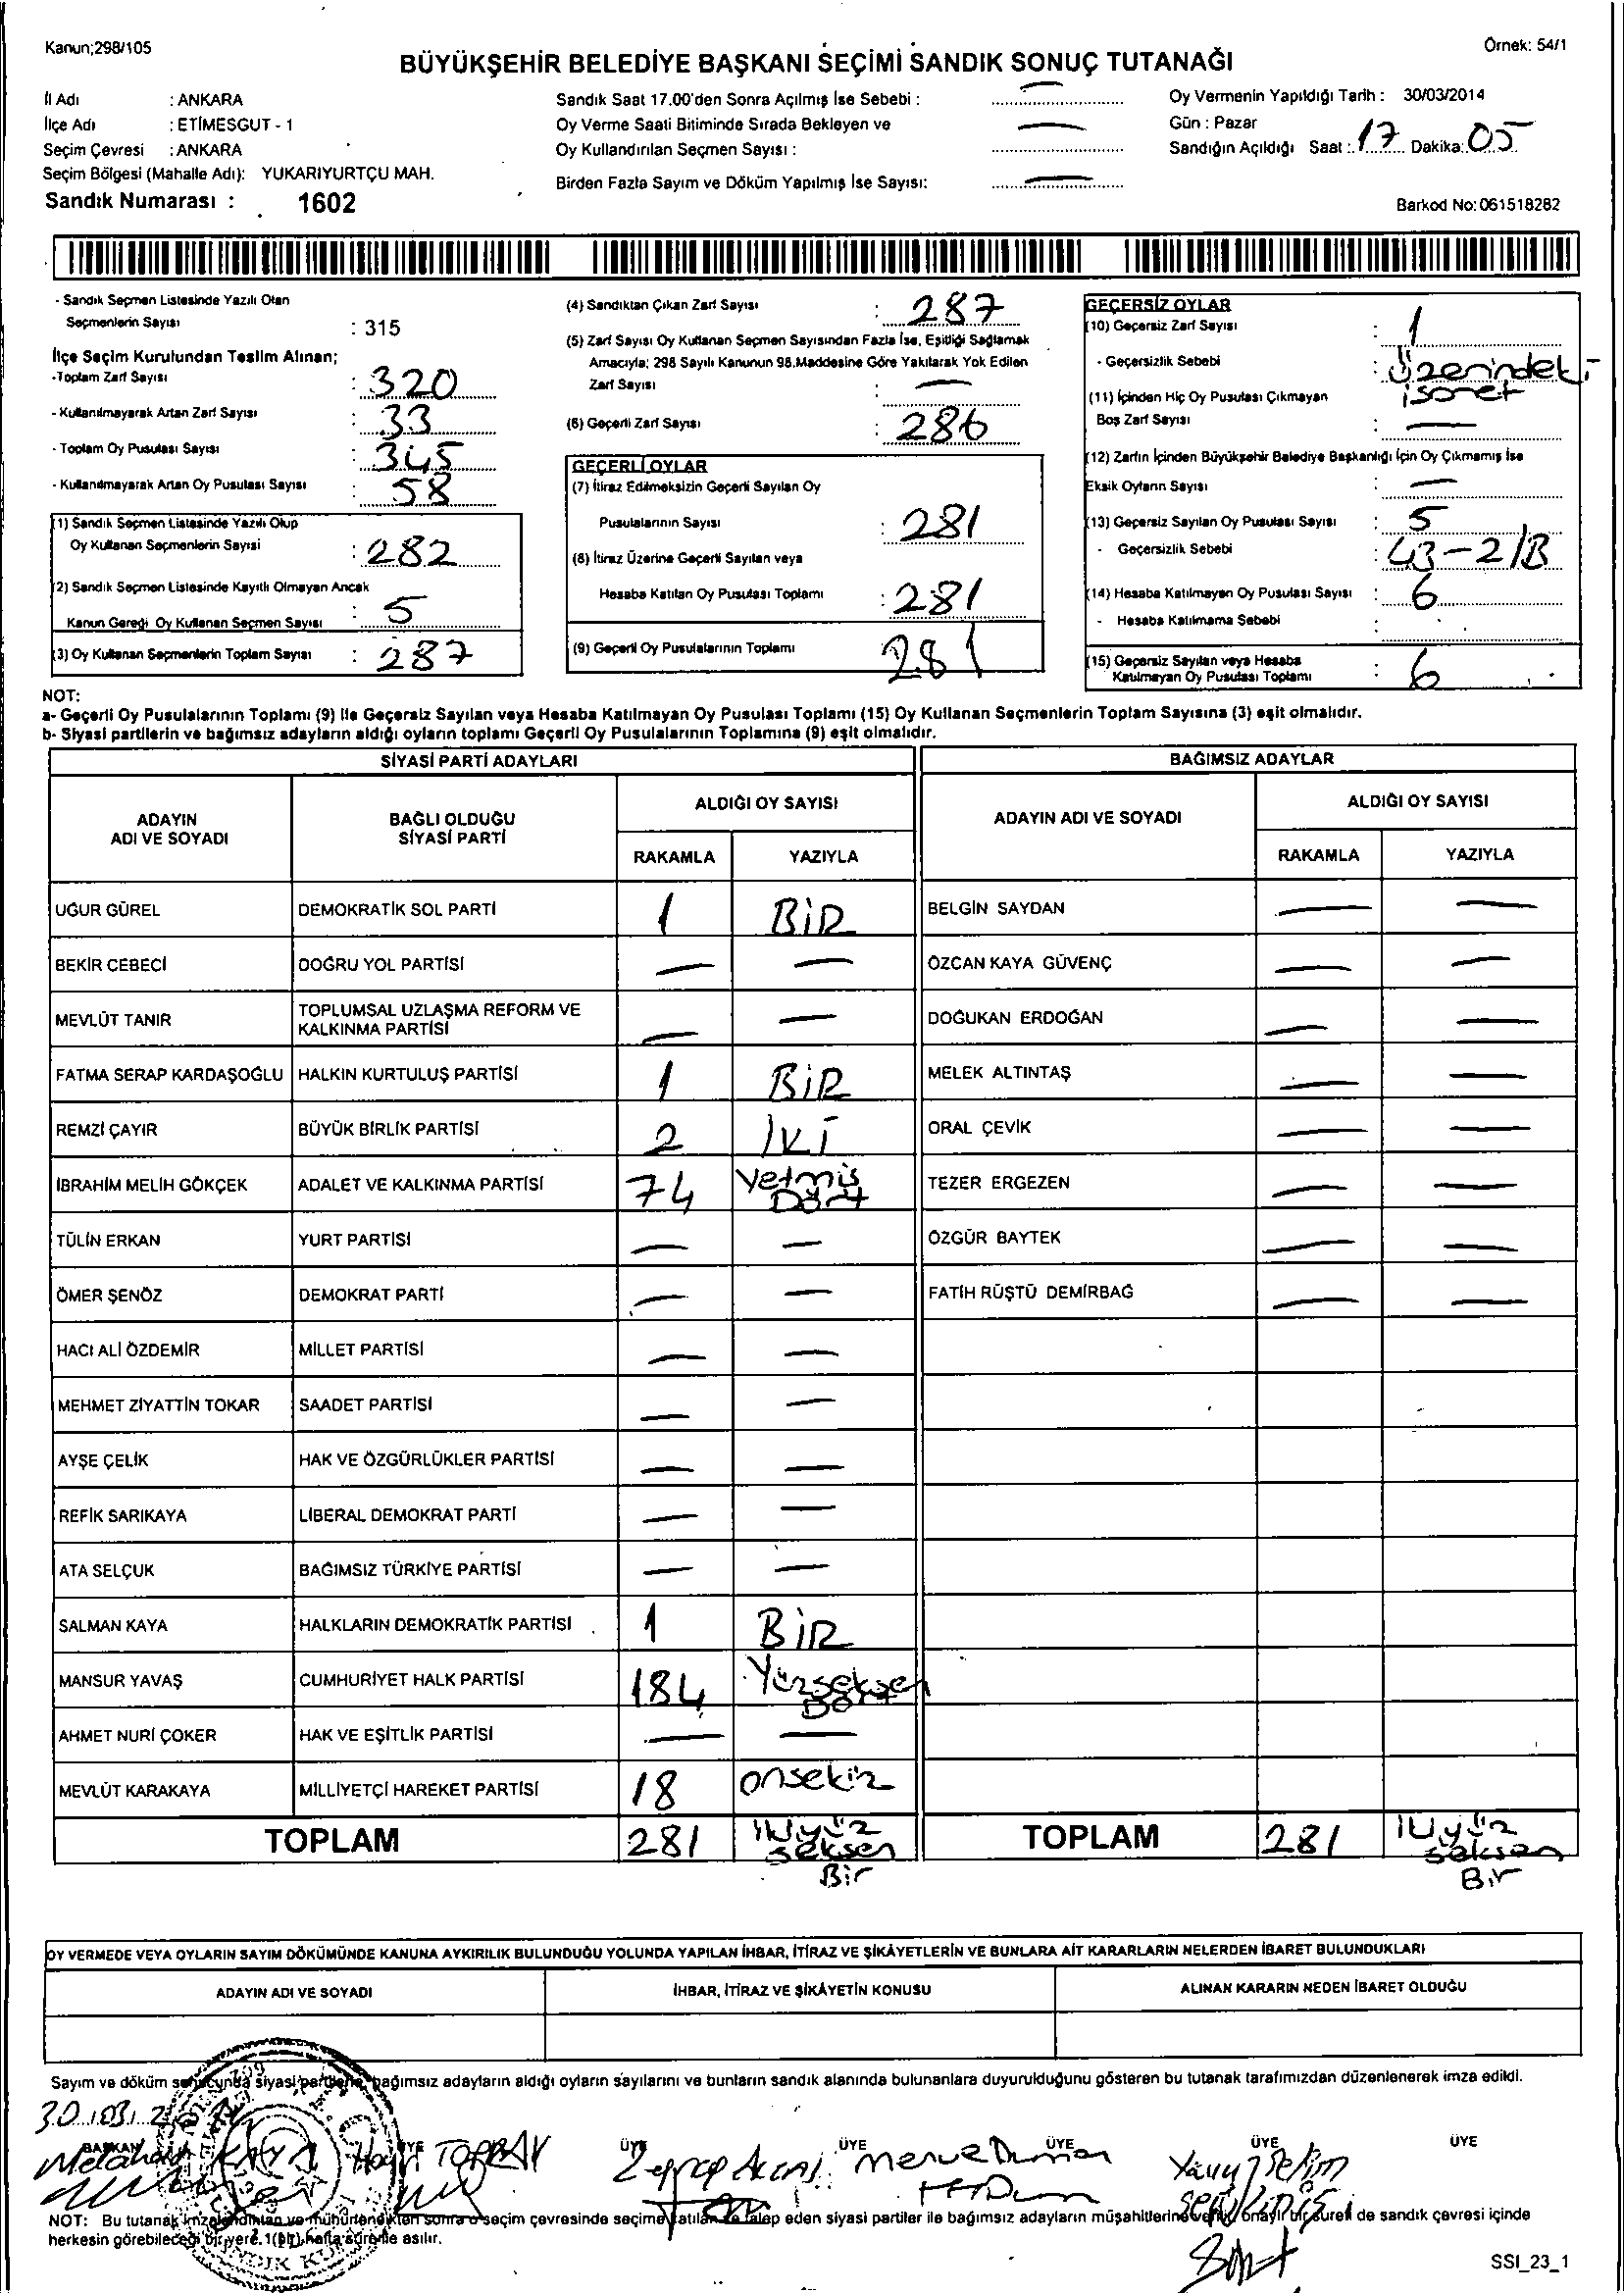 Kanun;298/105
Örnek: 54/1
BÜYÜKŞEHİR BELEDİYE BAŞKANI SEÇİMİ SANDIK SONUÇ TUTANAĞI
İl Adı : ANKARA
İlçe Adı : ETİMESGUT - 1
Seçim Çevresi : ANKARA
Seçim Bölgesi (Mahalle Adı): YUKARIYURTÇU MAH.
Sandık Numarası : 1602
Sandık Saat 17.00'den Sonra Açılmış İse Sebebi : —
Oy Verme Saati Bitiminde Sırada Bekleyen ve —
Oy Kullandırılan Seçmen Sayısı :
Birden Fazla Sayım ve Döküm Yapılmış İse Sayısı: —
Oy Vermenin Yapıldığı Tarih : 30/03/2014
Gün : Pazar
Sandığın Açıldığı Saat : 17 Dakika: 05
Barkod No: 061518282
- Sandık Seçmen Listesinde Yazılı Olan
Seçmenlerin Sayısı : 315
İlçe Seçim Kurulundan Teslim Alınan;
-Toplam Zarf Sayısı : 320
- Kullanılmayarak Artan Zarf Sayısı : 33
- Toplam Oy Pusulası Sayısı : 345
- Kullanılmayarak Artan Oy Pusulası Sayısı : 58
(1) Sandık Seçmen Listesinde Yazılı Olup
Oy Kullanan Seçmenlerin Sayısı : 282
(2) Sandık Seçmen Listesinde Kayıtlı Olmayan Ancak
Kanun Gereği Oy Kullanan Seçmen Sayısı : 5
(3) Oy Kullanan Seçmenlerin Toplam Sayısı : 287
(4) Sandıktan Çıkan Zarf Sayısı : 287
(5) Zarf Sayısı Oy Kullanan Seçmen Sayısından Fazla İse, Eşitliği Sağlamak
Amacıyla; 298 Sayılı Kanunun 98.Maddesine Göre Yakılarak Yok Edilen
Zarf Sayısı : —
(6) Geçerli Zarf Sayısı : 286
GEÇERLİ OYLAR
(7) İtiraz Edilmeksizin Geçerli Sayılan Oy
Pusulalarının Sayısı : 281
(8) İtiraz Üzerine Geçerli Sayılan veya
Hesaba Katılan Oy Pusulası Toplamı : 281
(9) Geçerli Oy Pusulalarının Toplamı 281
GEÇERSİZ OYLAR
(10) Geçersiz Zarf Sayısı : 1
- Geçersizlik Sebebi : Üzerindeki
işaret
(11) İçinden Hiç Oy Pusulası Çıkmayan
Boş Zarf Sayısı : —
(12) Zarfın İçinden Büyükşehir Belediye Başkanlığı İçin Oy Çıkmamış İse
Eksik Oyların Sayısı : —
(13) Geçersiz Sayılan Oy Pusulası Sayısı : 5
- Geçersizlik Sebebi : 43-2/B
(14) Hesaba Katılmayan Oy Pusulası Sayısı : 6
- Hesaba Katılmama Sebebi :
(15) Geçersiz Sayılan veya Hesaba
Katılmayan Oy Pusulası Toplamı : 6
NOT:
a- Geçerli Oy Pusulalarının Toplamı (9) ile Geçersiz Sayılan veya Hesaba Katılmayan Oy Pusulası Toplamı (15) Oy Kullanan Seçmenlerin Toplam Sayısına (3) eşit olmalıdır.
b- Siyasi partilerin ve bağımsız adayların aldığı oyların toplamı Geçerli Oy Pusulalarının Toplamına (9) eşit olmalıdır.
SİYASİ PARTİ ADAYLARI
BAĞIMSIZ ADAYLAR
ADAYIN
ADI VE SOYADI
BAĞLI OLDUĞU
SİYASİ PARTİ
ALDIĞI OY SAYISI
RAKAMLA YAZIYLA
ADAYIN ADI VE SOYADI
ALDIĞI OY SAYISI
RAKAMLA YAZIYLA
UĞUR GÜREL DEMOKRATİK SOL PARTİ 1 BİR BELGİN SAYDAN — —
BEKİR CEBECİ DOĞRU YOL PARTİSİ — — ÖZCAN KAYA GÜVENÇ — —
MEVLÜT TANIR TOPLUMSAL UZLAŞMA REFORM VE
KALKINMA PARTİSİ — — DOĞUKAN ERDOĞAN — —
FATMA SERAP KARDAŞOĞLU HALKIN KURTULUŞ PARTİSİ 1 BİR MELEK ALTINTAŞ — —
REMZİ ÇAYIR BÜYÜK BİRLİK PARTİSİ 2 İKİ ORAL ÇEVİK — —
İBRAHİM MELİH GÖKÇEK ADALET VE KALKINMA PARTİSİ 74 Yetmiş
Dört TEZER ERGEZEN — —
TÜLİN ERKAN YURT PARTİSİ — — ÖZGÜR BAYTEK — —
ÖMER ŞENÖZ DEMOKRAT PARTİ — — FATİH RÜŞTÜ DEMİRBAĞ — —
HACI ALİ ÖZDEMİR MİLLET PARTİSİ — —
MEHMET ZİYATTİN TOKAR SAADET PARTİSİ — —
AYŞE ÇELİK HAK VE ÖZGÜRLÜKLER PARTİSİ — —
REFİK SARIKAYA LİBERAL DEMOKRAT PARTİ — —
ATA SELÇUK BAĞIMSIZ TÜRKİYE PARTİSİ — —
SALMAN KAYA HALKLARIN DEMOKRATİK PARTİSİ 1 BİR
MANSUR YAVAŞ CUMHURİYET HALK PARTİSİ 184 Yüzseksen
Dört
AHMET NURİ ÇOKER HAK VE EŞİTLİK PARTİSİ — —
MEVLÜT KARAKAYA MİLLİYETÇİ HAREKET PARTİSİ 18 onsekiz
TOPLAM 281 ikiyüz
seksen
Bir
TOPLAM 281 ikiyüz
seksen
Bir
OY VERMEDE VEYA OYLARIN SAYIM DÖKÜMÜNDE KANUNA AYKIRILIK BULUNDUĞU YOLUNDA YAPILAN İHBAR, İTİRAZ VE ŞİKÂYETLERİN VE BUNLARA AİT KARARLARIN NELERDEN İBARET BULUNDUKLARI
ADAYIN ADI VE SOYADI İHBAR, İTİRAZ VE ŞİKÂYETİN KONUSU ALINAN KARARIN NEDEN İBARET OLDUĞU
Sayım ve döküm sonucunda siyasi partilerin, bağımsız adayların aldığı oyların sayılarını ve bunların sandık alanında bulunanlara duyurulduğunu gösteren bu tutanak tarafımızdan düzenlenerek imza edildi.
30.03.2014
BAŞKAN ÜYE ÜYE ÜYE ÜYE ÜYE ÜYE
Melahat KAYA TOPRAK Zeynep Merve Duman Yavuz
NOT: Bu tutanak imzalandıktan ve mühürlendikten sonra o seçim çevresinde seçime katılan ve talep eden siyasi partiler ile bağımsız adayların müşahitlerine verilir, onaylı bir sureti de sandık çevresi içinde
herkesin görebileceği bir yere 1(bir) hafta süreyle asılır.
SSI_23_1